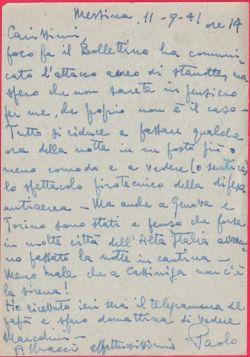 Messina, 11-9-41 ore 14
Carissimi,
poco fa il Bollettino ha comuni-
cato l'attacco aereo di stanotte, ma
spero che non sarete in pensiero
per me, che proprio non è il caso -
Tutto si riduce a passare qualche
ora della notte in un posto più o
meno comodo e a vedere (o sentire)
lo spettacolo pirotecnico della difesa
antiaerea - Ma anche a Genova e
Torino sono stati e penso che forse
in molte città dell'Alta Italia avran-
no passato la notte in cantina -
Meno male che a Cassiniga non c'è
la sirena!
Ho ricevuto ieri sera il telegramma del
papà e spero domattina di vedere
Marcolini -
Abbracci affettuosissimi Paolo